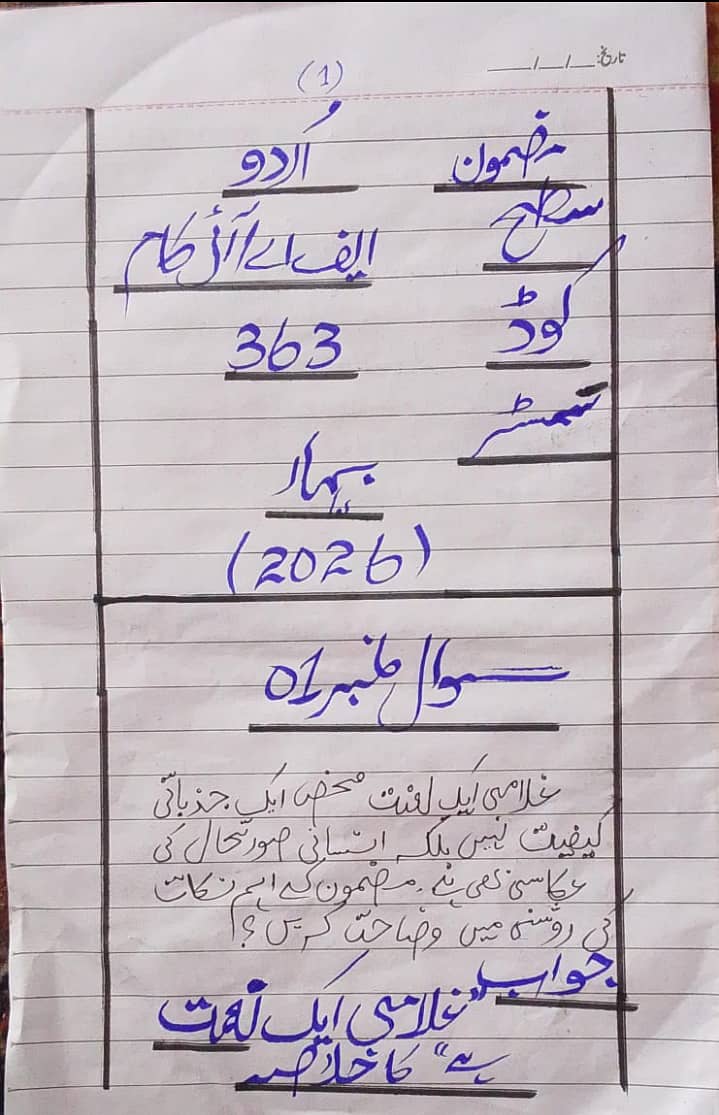 تاریخ: __/__/____
(1)
مضمون اُردو
سطح ایف اے/آئی کام
کوڈ 363
سمسٹر
بہار
(2026)
سوال نمبر 01
غلامی ایک لعنت محض ایک جذباتی
کیفیت نہیں بلکہ انسانی صورتحال کی
عکاسی بھی ہے۔ مضمون کے اہم نکات
کی روشنی میں وضاحت کریں؟
جواب "غلامی ایک لعنت
ہے" کا خلاصہ